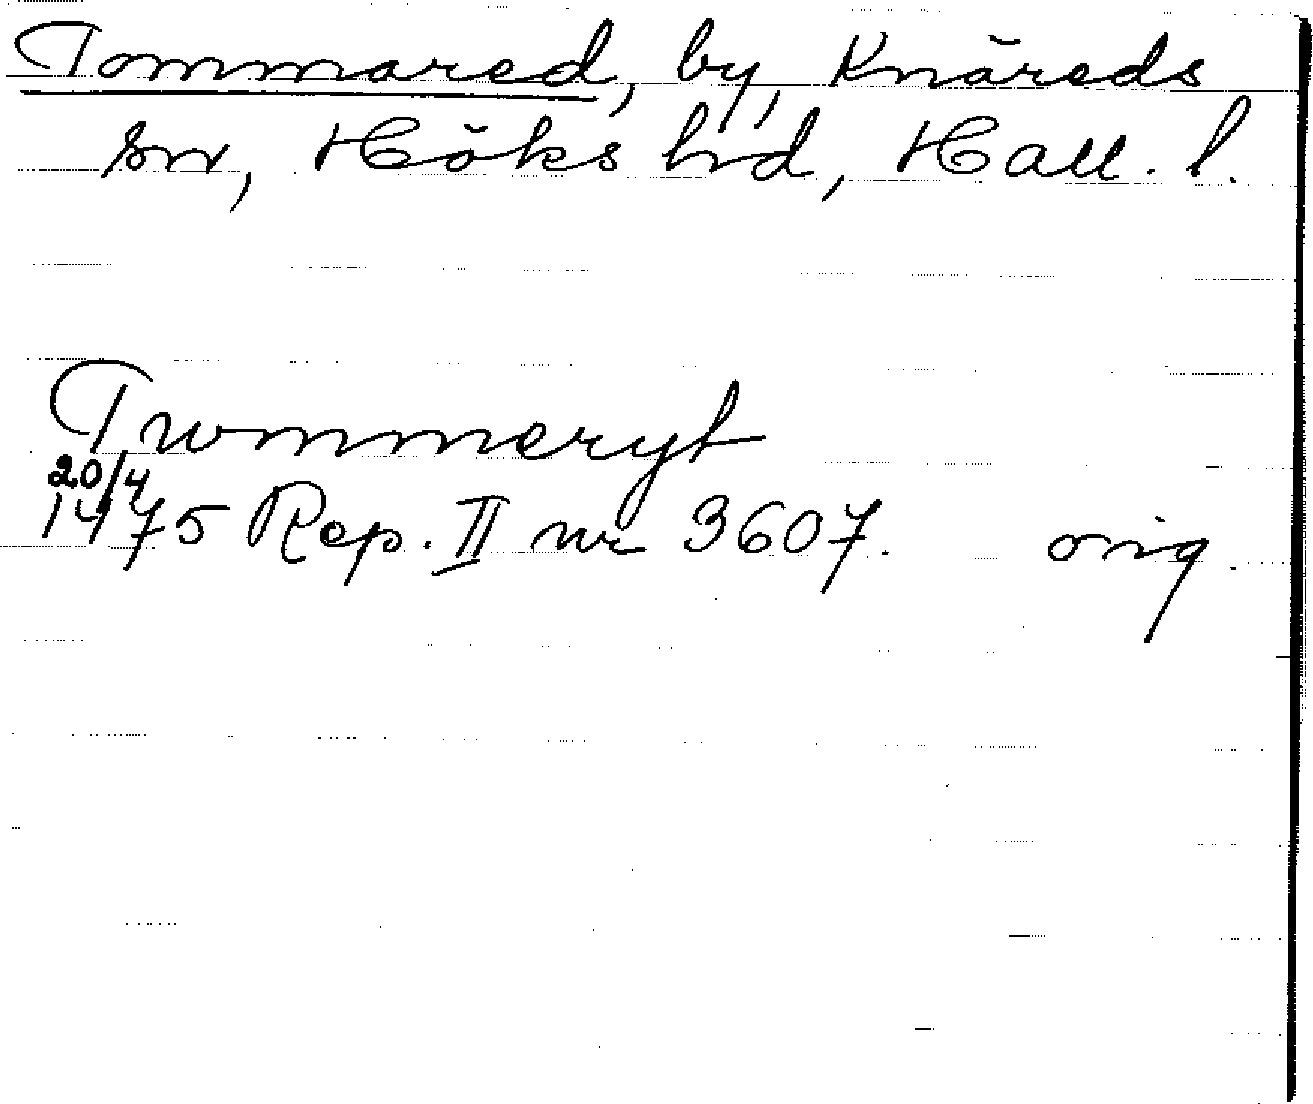 Tommared, by, Knäreds
sn, Höks hd, Hall. l.
Twmmeryt
20/4
1475 Rep. II nr 3607. orig